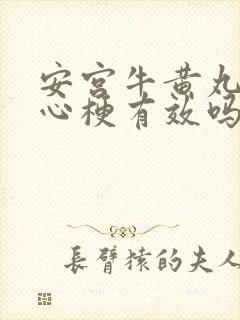 安宫牛黄丸
心梗有效吗
長臂猿的夫人